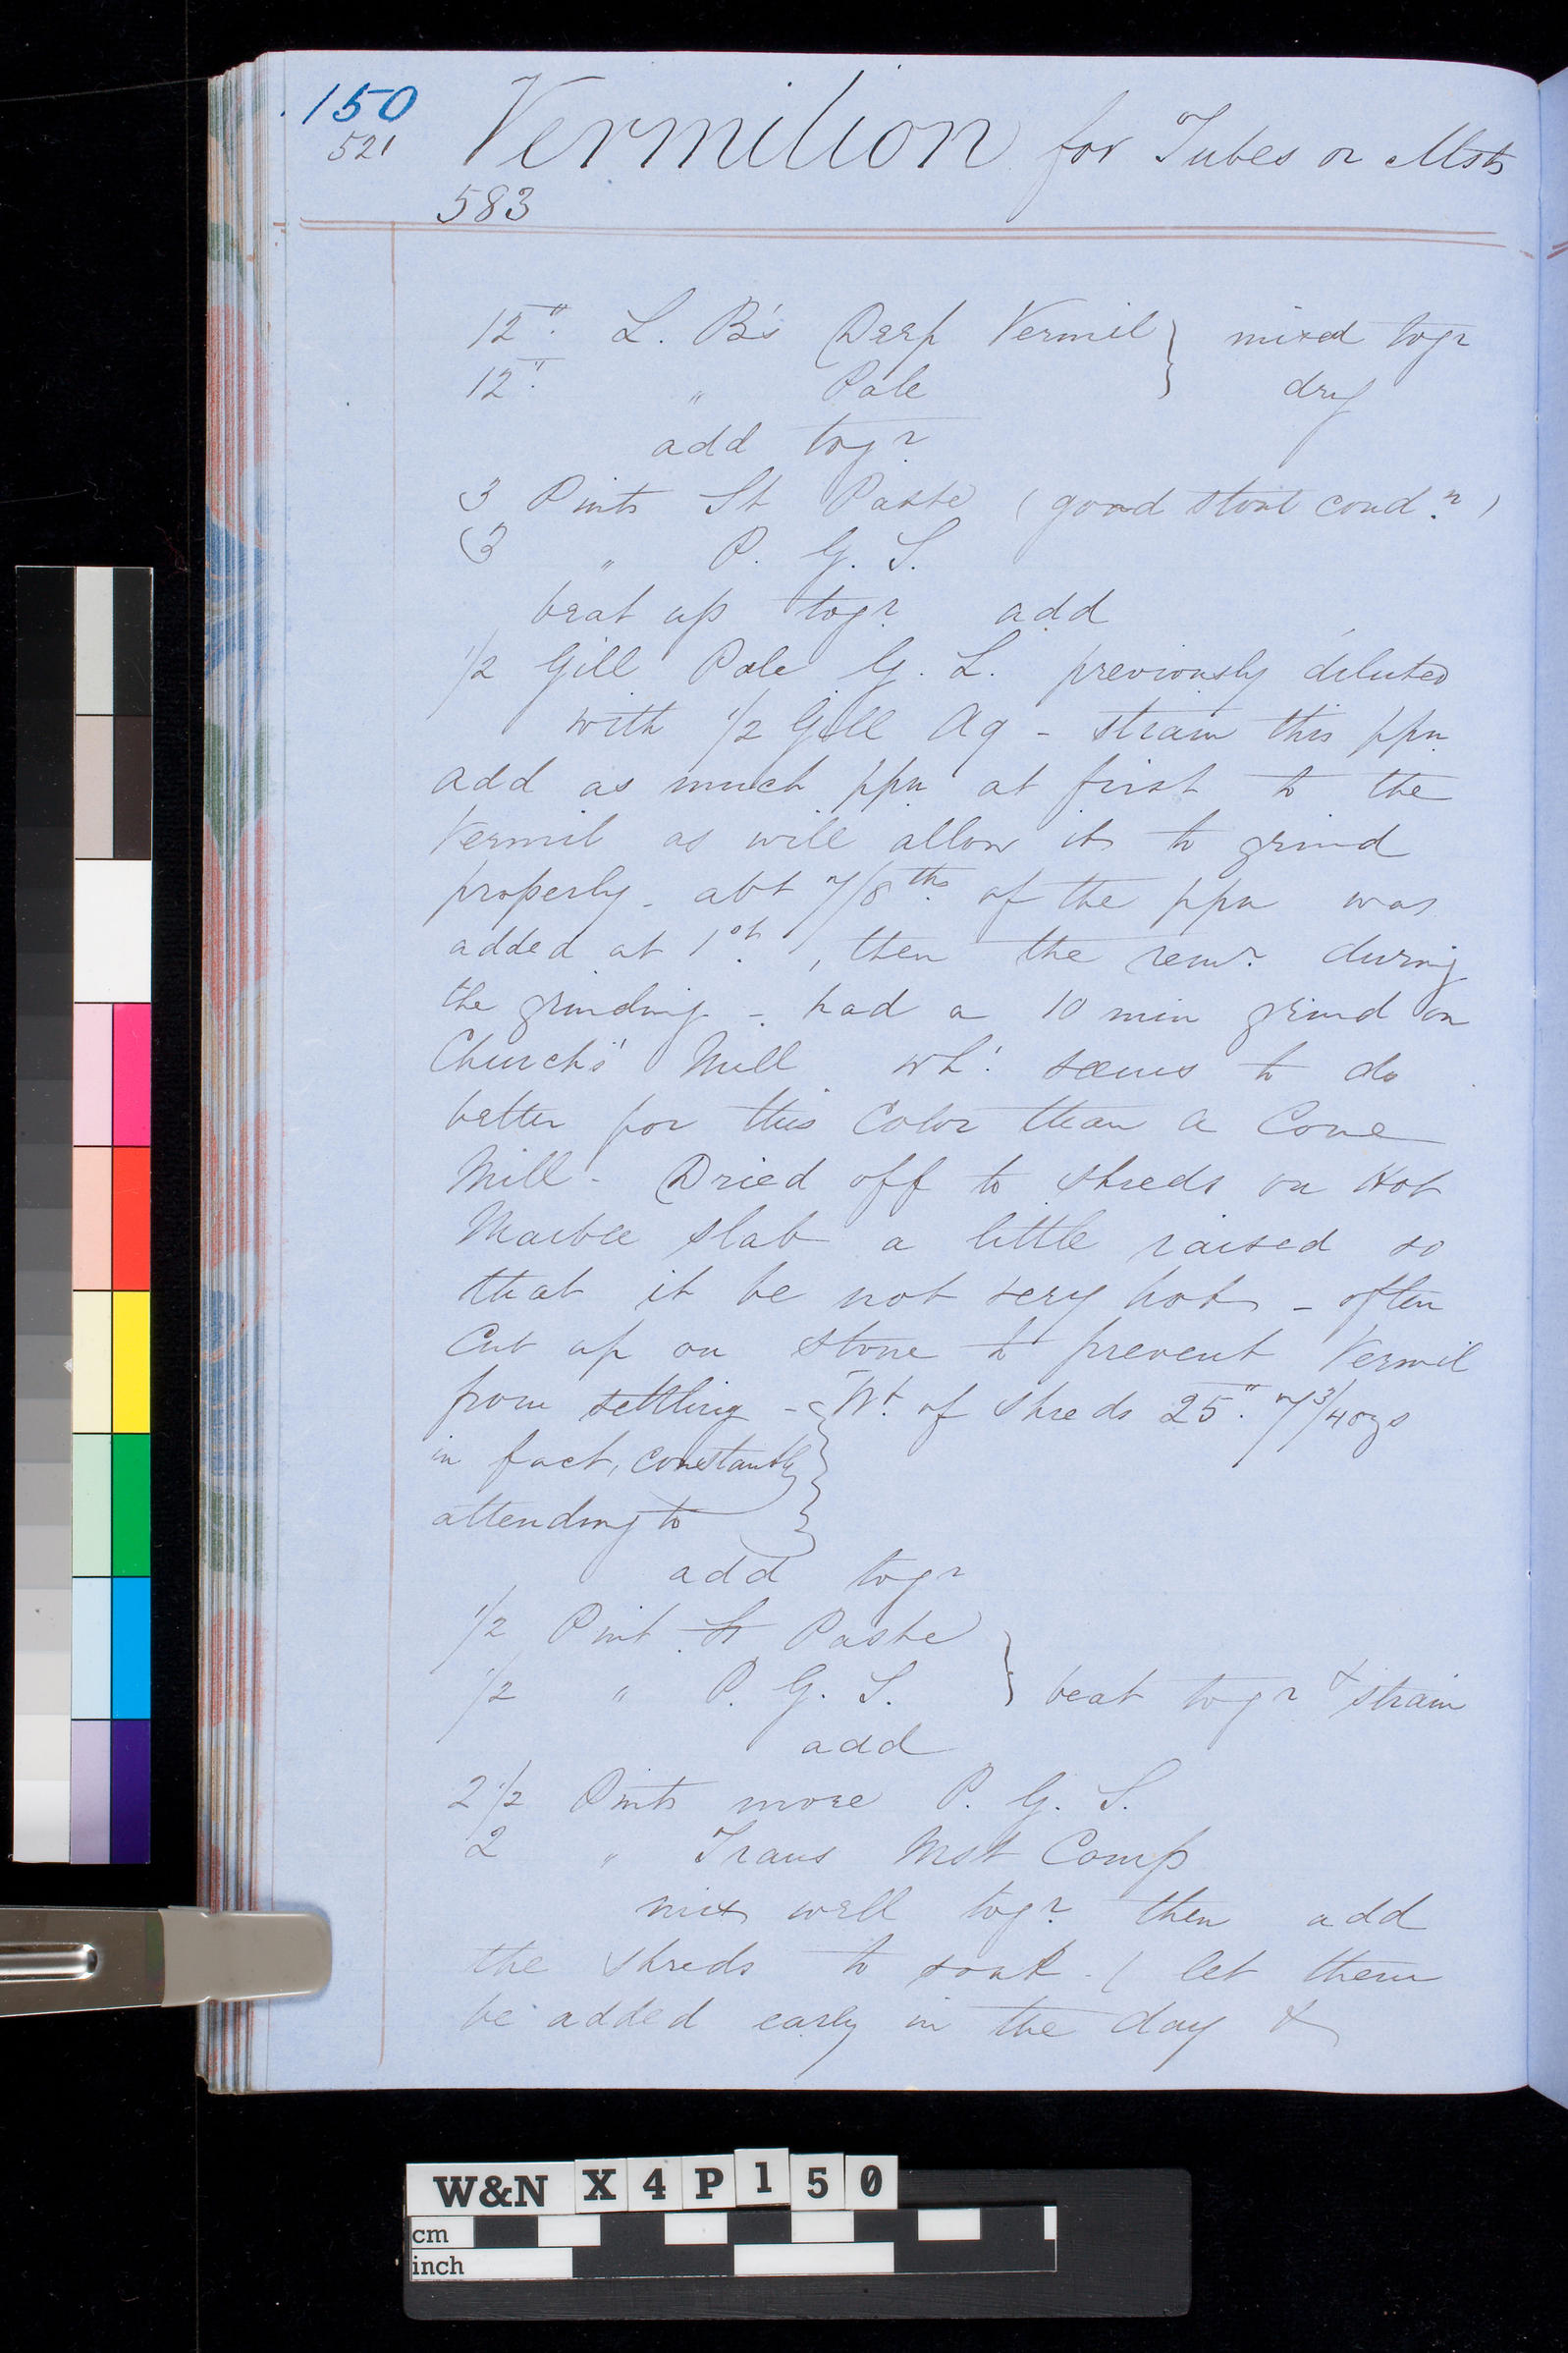 150
521
Vermilion for Tubes or Msts
583
12". L. B's Deep Vermil } mixed togr
12". " Pale } dry
add togr
3 Pints St Paste (good stout cond.n)
3 " P. G. S.
beat up togr add
1/2 Gill Pale G. L. previously diluted
with 1/2 Gill Aq - strain this ppn
add as much ppn at first to the
Vermil as will allow it to grind
properly - abt 7/8ths of the ppn was
added at 1st, then the remr during
the grinding - had a 10 min grind on
Church's Mill wh: seems to do
better for this Color than a Cone
Mill - Dried off to shreds on Hot
Marble slab a little raised so
that it be not very hot - often
Cut up on stone to prevent Vermil
from settling - { Wt. of shreds 25". 7 3/4 ozs
in fact, constantly
attending to }
add togr
1/2 Pint St Paste
1/2 " P. G. S. } beat togr & strain
add
2 1/2 Pints more P. G. S.
2 " Trans Mst Comp
mix well togr then add
the shreds to soak - ( let them
be added early in the day &
W&N X4P150
cm
inch